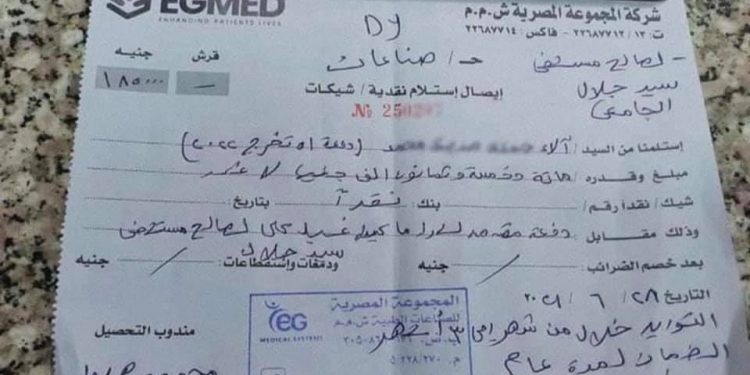 EGMED
ENHANCING PATIENTS LIVES
شركة المجموعة المصرية ش.م.م
ت: ٢٢٦٨٧٧١٢/١٣ - فاكس: ٢٢٦٨٧٧١٤
Dy
لصالح مستشفى
سيد جلال
الجامعى
ح/ صناعات
قرش جنيه
ــ ١٨٥٠٠٠
إيصال إستلام نقدية / شيكات
№ 250
إستلمنا من السيد / آلاء محمد (دفعة تخرج ٢٠٢٢)
مبلغ وقدره / مائة وخمسة وثمانون الف جنيها لا غير
شيك / نقدا رقم / نقدآ بنك: بتاريخ:
وذلك مقابل دفعة مقدمة غسيل كلى لصالح مستشفى
سيد جلال
بعد خصم الضرائب / جنيه ودمغات وإستقطاعات / جنيه
التاريخ ٢٨ / ٦ / ٢٠٢١
التوريد خلال من شهر الى ٣ أشهر
الضمان لمدة عام
المجموعة المصرية
للصناعات الطبية ش.م.م
EG
MEDICAL SYSTEMS
مندوب التحصيل